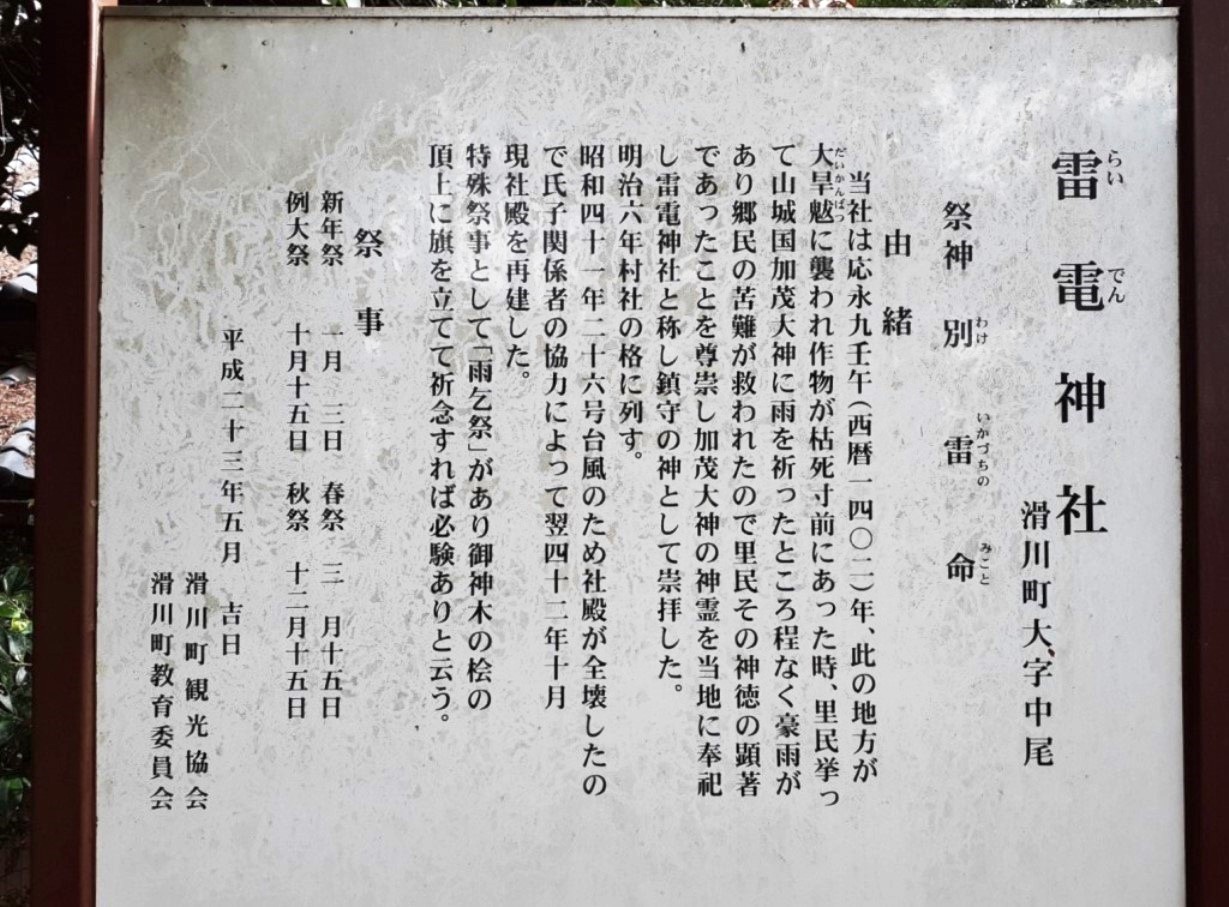 雷電神社
らいでん
滑川町大字中尾
祭神 別雷命
わけ いかづちの みこと
由緒
当社は応永九壬午(西暦一四〇二)年、此の地方が
大旱魃に襲われ作物が枯死寸前にあった時、里民挙っ
だいかんば
て山城国加茂大神に雨を祈ったところ程なく豪雨が
あり郷民の苦難が救われたので里民その神徳の顕著
であったことを尊崇し加茂大神の神霊を当地に奉祀
し雷電神社と称し鎮守の神として崇拝した。
明治六年村社の格に列す。
昭和四十一年二十六号台風のため社殿が全壊したの
で氏子関係者の協力によって翌四十二年十月
現社殿を再建した。
特殊祭事として「雨乞祭」があり御神木の桧の
頂上に旗を立てて祈念すれば必験ありと云う。
祭事
新年祭 一月 三日 春祭 三 月十五日
例大祭 十月十五日 秋祭 十二月十五日
平成二十三年五月 吉日
滑川町観光協会
滑川町教育委員会